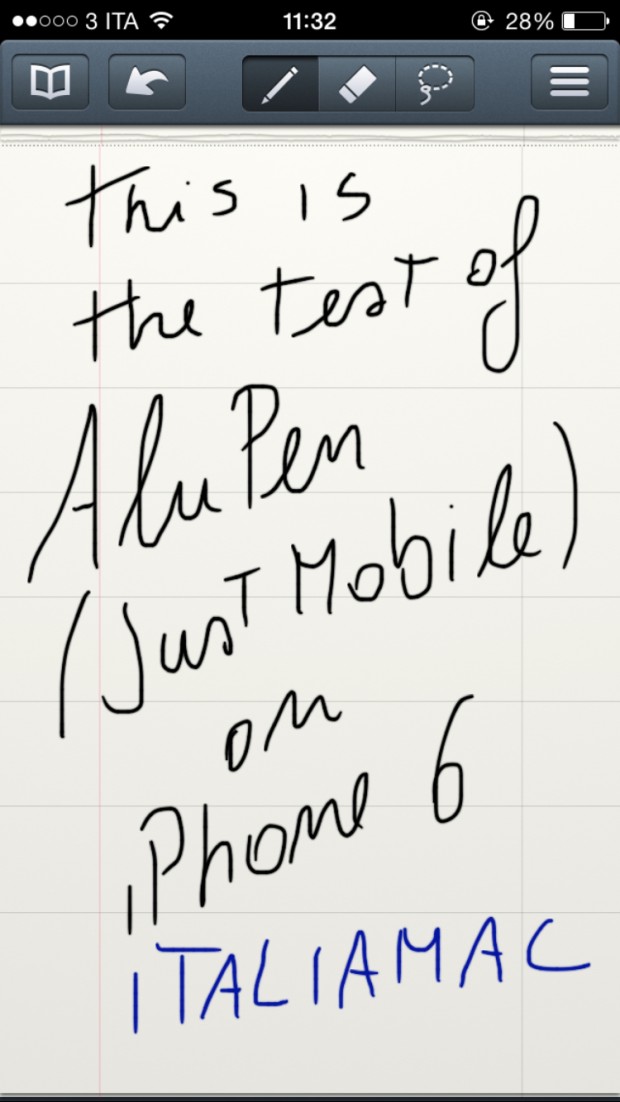 3 ITA 11:32 28%
this is
the test of
AluPen
(Just Mobile)
on
iPhone 6
iTALIAMAC